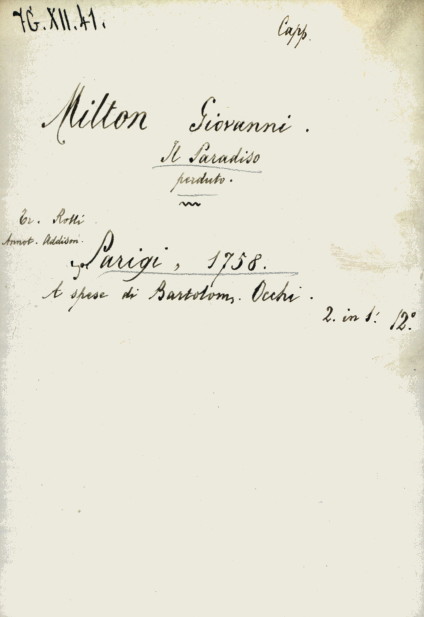 7G.XII.41.
Capp.
Milton Giovanni.
Il Paradiso
perduto.
Tr. Rolli
Annot. Addison.
Parigi, 1758.
A spese di Bartolom. Occhi.
2. in 1. 12°